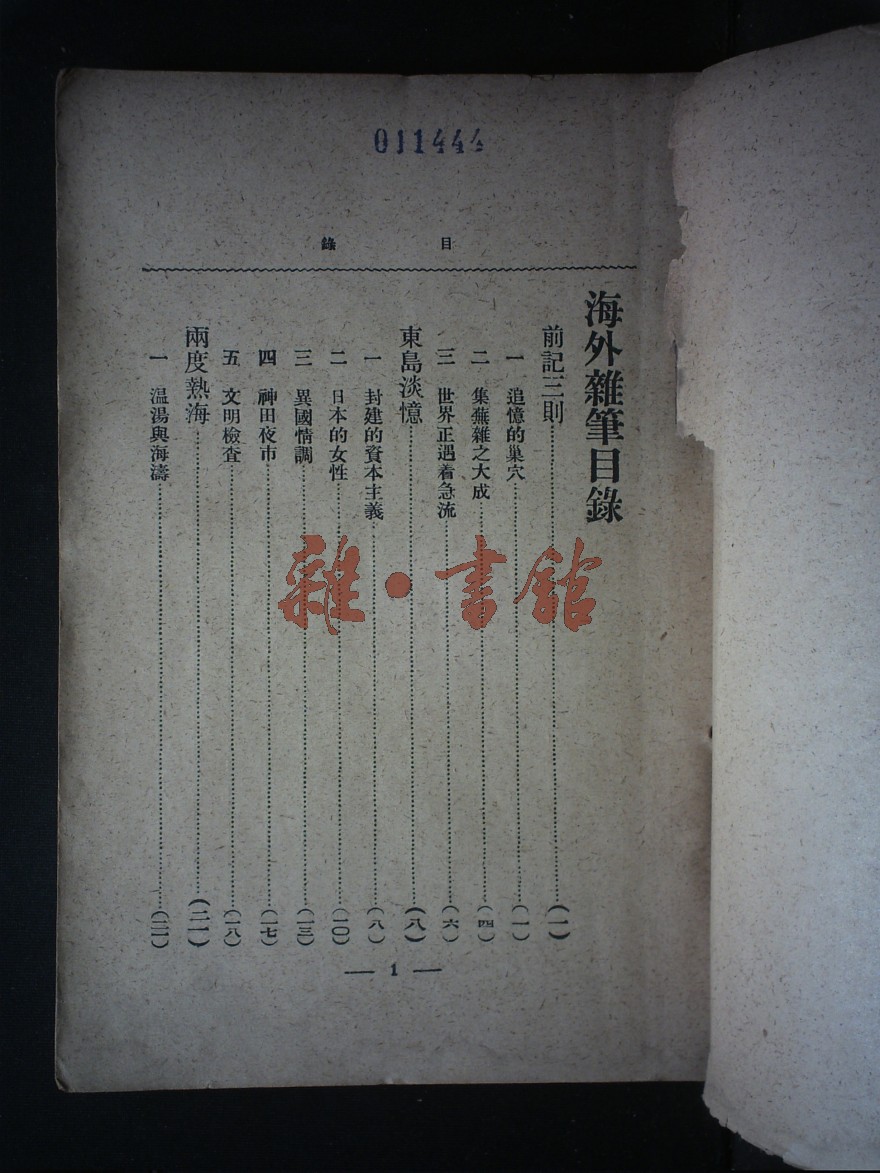 011444
目錄
海外雜筆目錄
前記三則……(一)
一 追憶的巢穴……(一)
二 集蕪雜之大成……(四)
三 世界正遇着急流……(六)
東島淡憶……(八)
一 封建的資本主義……(八)
二 日本的女性……(一〇)
三 異國情調……(一三)
四 神田夜市……(一七)
五 文明檢查……(一八)
兩度熱海……(二一)
一 温湯與海濤……(二一)
— 1 —
雜·書館